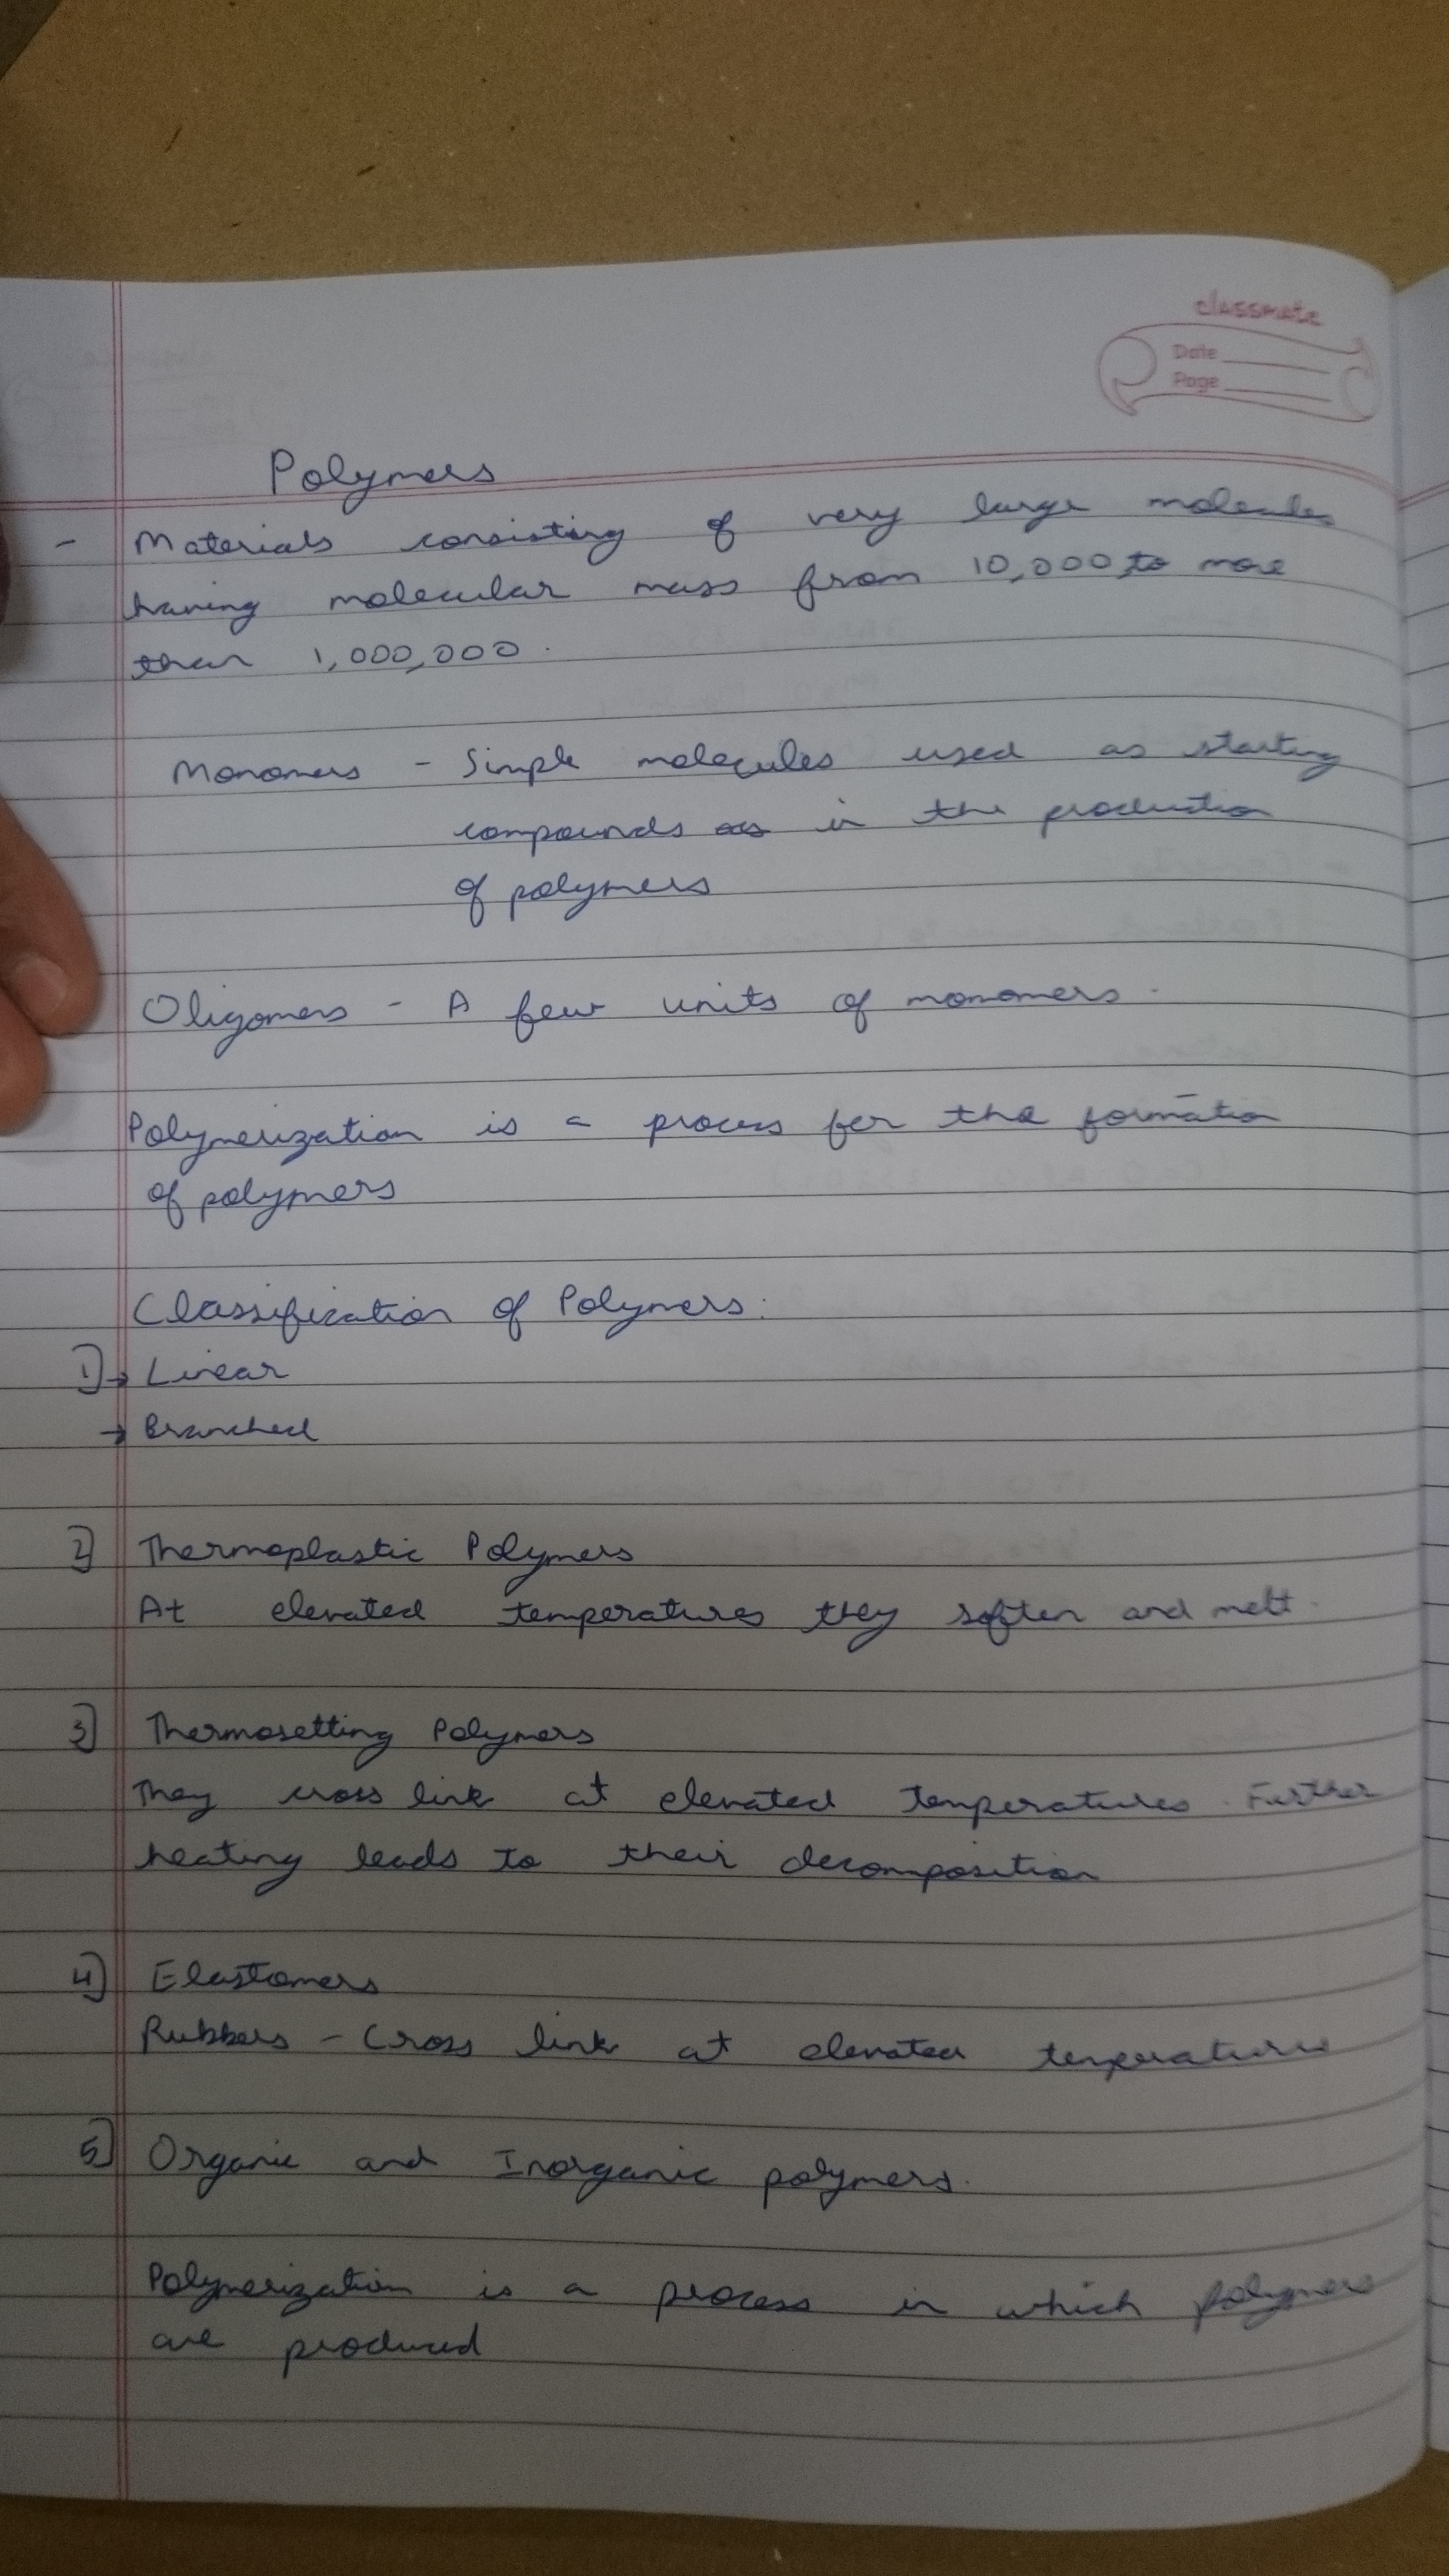 classmate
Date
Page
Polymers
- Materials consisting of very large molecules
having molecular mass from 10,000 to more
than 1,000,000.
Monomers - Simple molecules used as starting
compounds as in the production
of polymers
Oligomers - A few units of monomers.
Polymerization is a process for the formation
of polymers
Classification of Polymers:
1] → Linear
→ Branched
2] Thermoplastic Polymers
At elevated temperatures they soften and melt.
3] Thermosetting Polymers
They cross link at elevated temperatures. Further
heating leads to their decomposition
4] Elastomers
Rubbers - Cross link at elevated temperatures
5] Organic and Inorganic polymers.
Polymerization is a process in which polymers
are produced